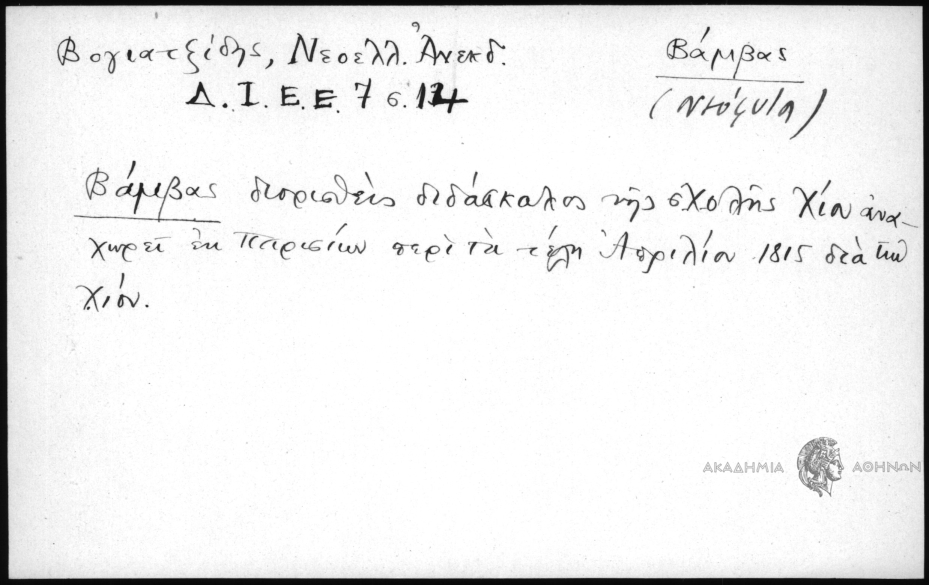 Βογιατζίδης, Νεοελλ. Ἀνεκδ.
Δ. Ι. Ε. Ε. 7 σ.
Βάμβας
Βάμβας διορισθεὶς διδάσκαλος τῆς σχολῆς Χίου ἀνα-
χωρεῖ ἐκ Παρισίων περὶ τὰ τέλη Ἀπριλίου 1815 διὰ τὴν
Χίον.
ΑΚΑΔΗΜΙΑ ΑΘΗΝΩΝ